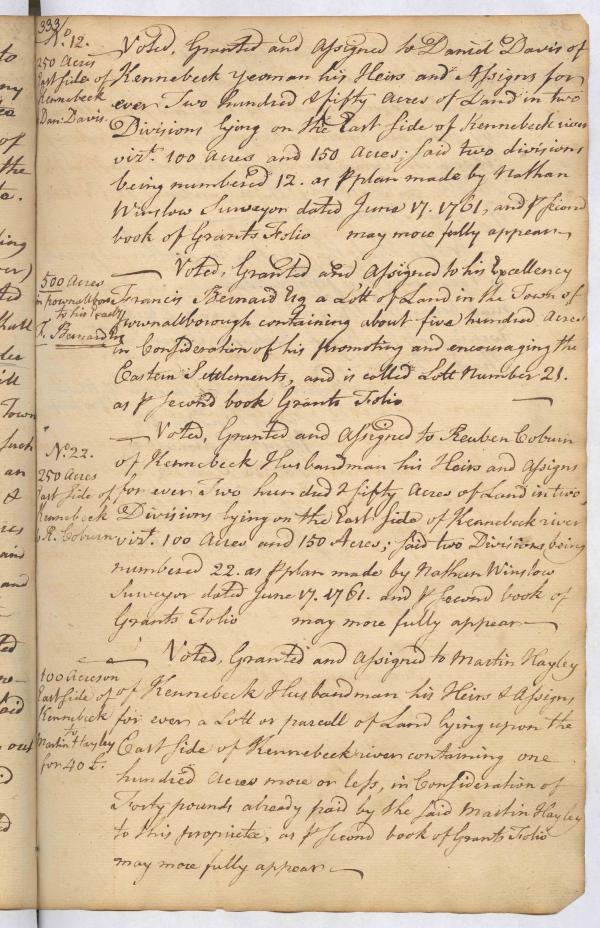 333
No. 12.
250 Acres
East side of
Kennebeck
Dan: Davis.
Voted, Granted and Assigned to Daniel Davis of
Kennebeck Yeoman his Heirs and Assigns for
ever Two hundred & fifty Acres of Land in two
Divisions lying on the East side of Kennebeck river
vizt. 100 Acres and 150 Acres; said two divisions
being numbered 12. as P plan made by Nathan
Winslow Surveyor dated June 17. 1761, and P second
book of Grants Folio may more fully appear
500 Acres
in pownallboro
to his Excelly
F. Bernard Esq
Voted, Granted and Assigned to his Excellency
Francis Bernard Esq a Lott of Land in the Town of
Pownallborough containing about five hundred Acres
in Consideration of his promoting and encouraging the
Eastern Settlements, and is called Lott Number 21.
as P second book Grants Folio
No. 22.
250 Acres
East side of
Kennebeck
R. Coburn
Voted, Granted and Assigned to Reuben Coburn
of Kennebeck Husbandman his Heirs and Assigns
for ever Two hundred & fifty Acres of Land in two
Divisions lying on the East side of Kennebeck river
vizt. 100 Acres and 150 Acres; said two Divisions being
numbered 22. as P plan made by Nathan Winslow
Surveyor dated June 17. 1761. and P second book of
Grants Folio may more fully appear
100 Acres on
East side of
Kennebeck
to
Martin Hayley
for 40 £.
Voted, Granted and Assigned to Martin Hayley
of Kennebeck Husbandman his Heirs & Assigns
for ever a Lott or parcell of Land lying upon the
East side of Kennebeck river containing one
hundred Acres more or less, in Consideration of
Forty pounds already paid by the said Martin Hayley
to this propriete, as P second book of Grants Folio
may more fully appear